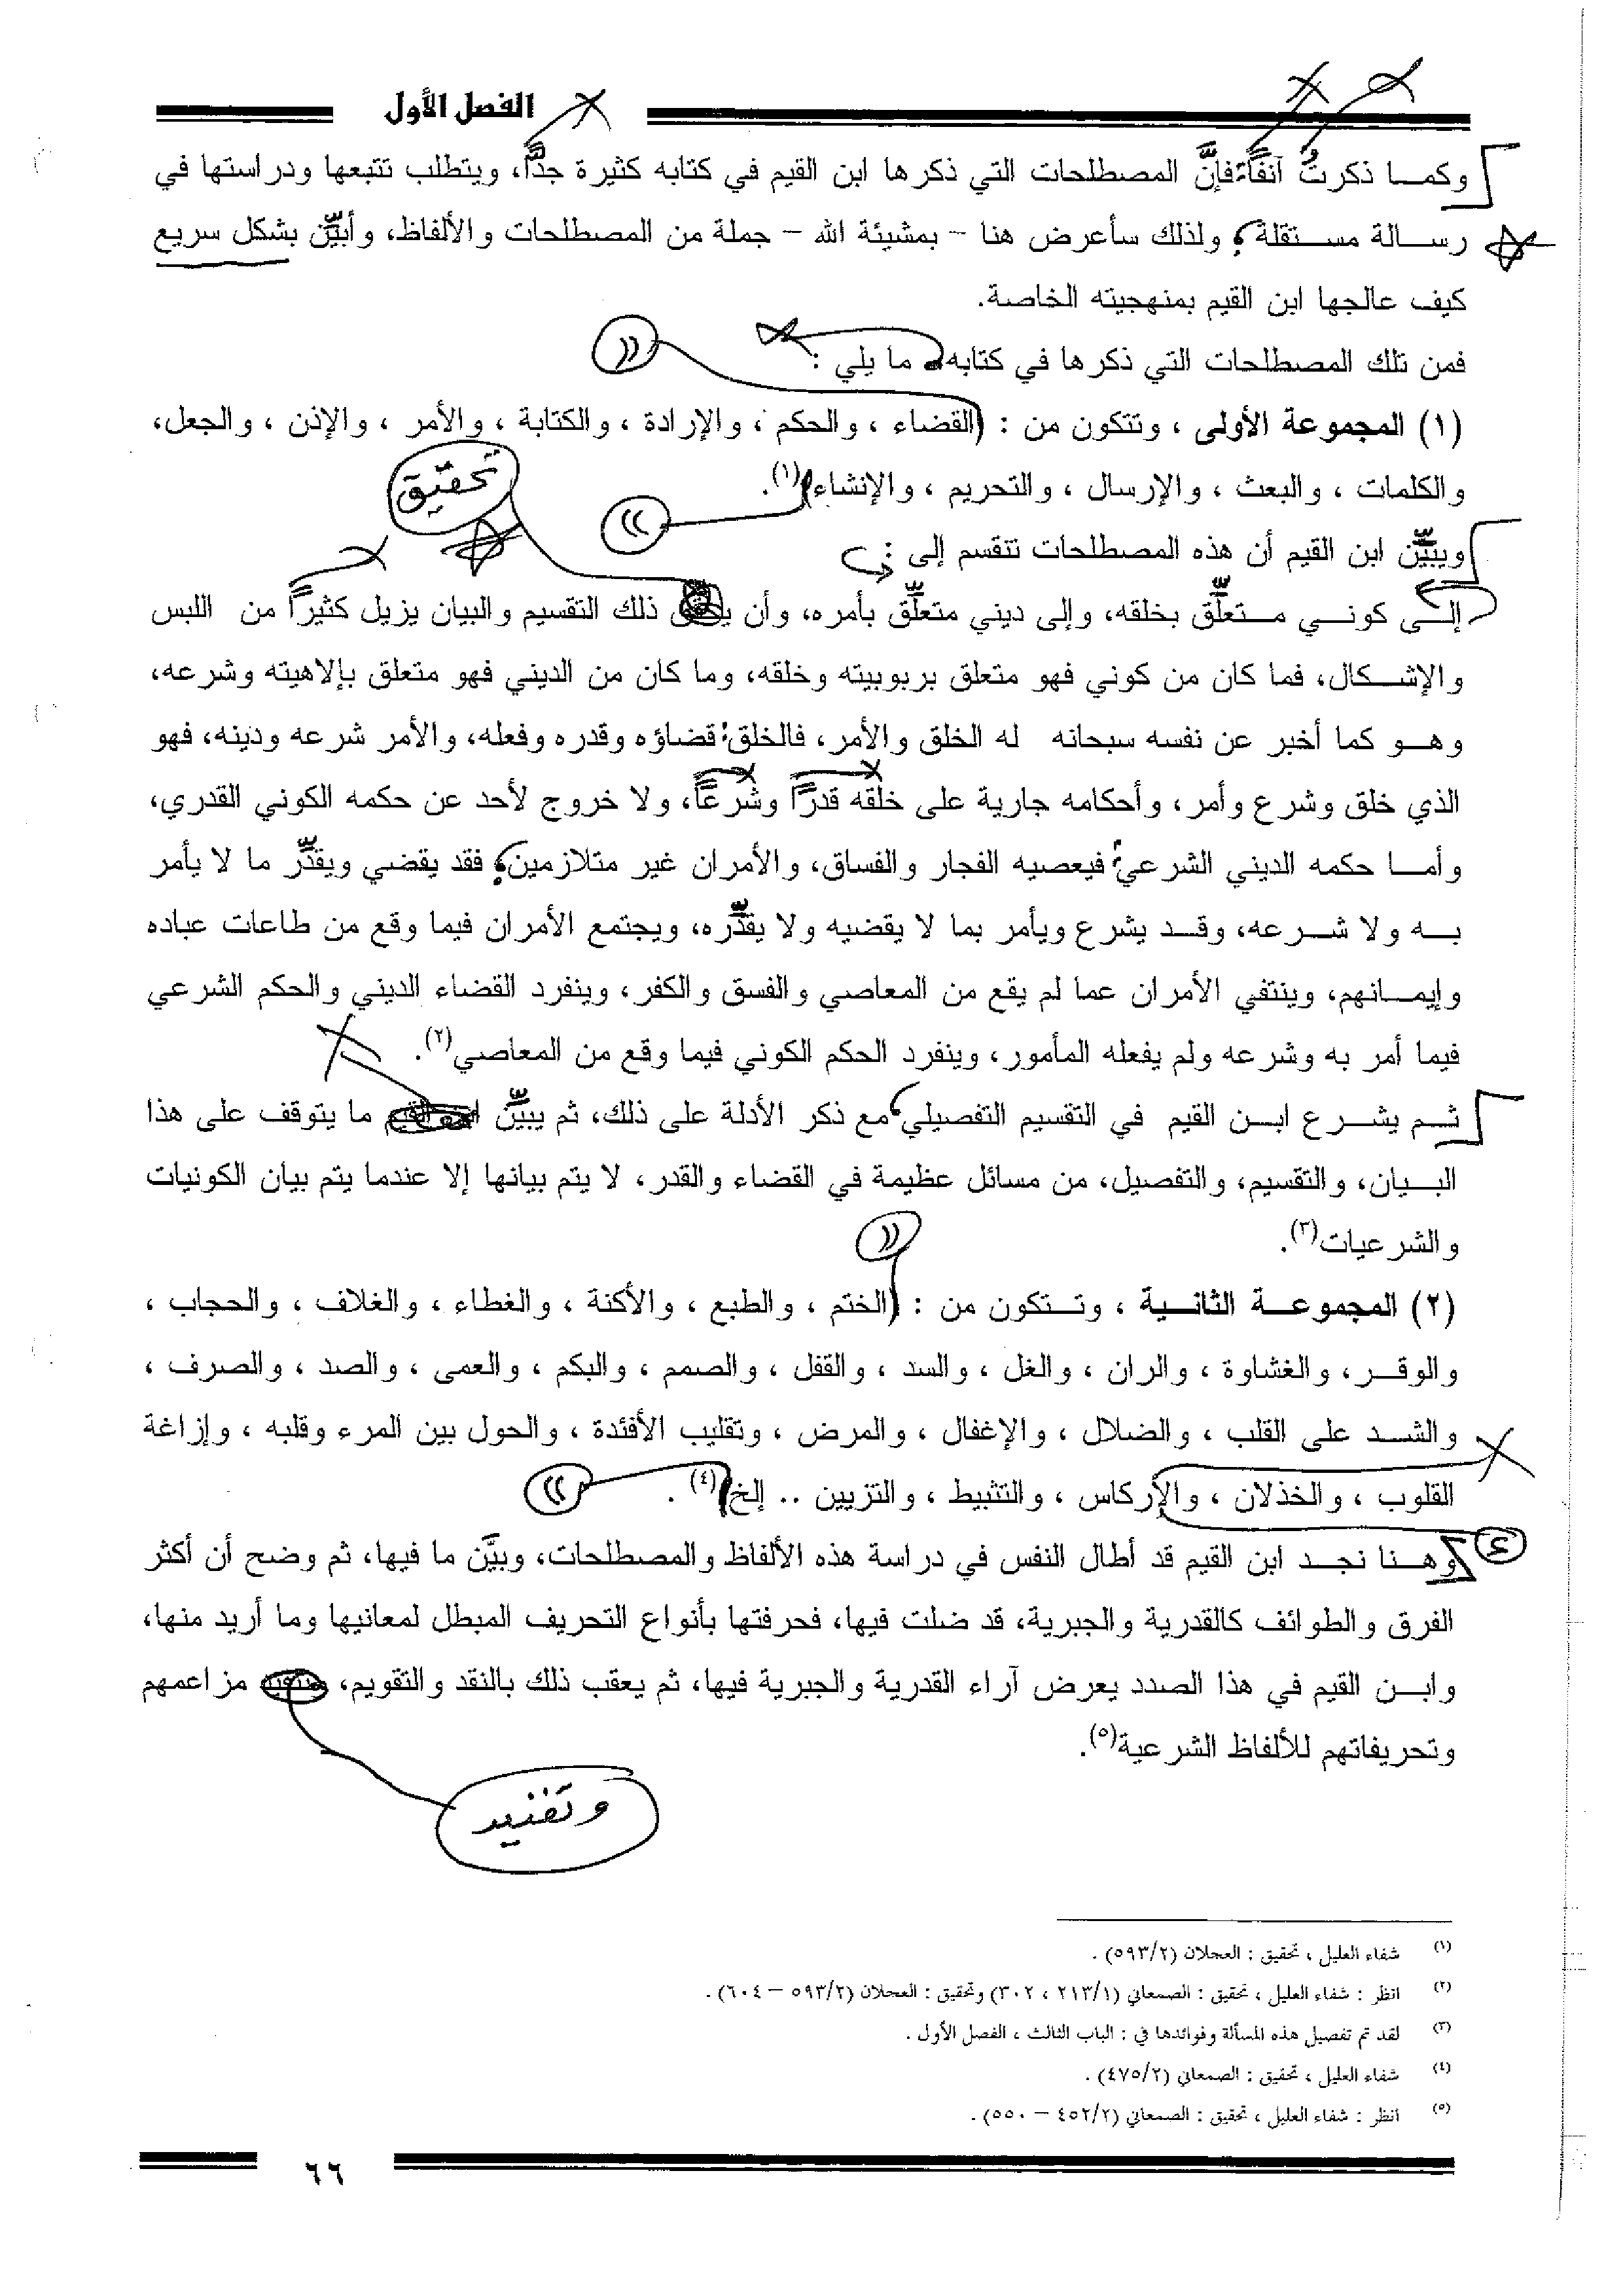 الفصل الأول
وكمـا ذكرتُ آنفاً؛ فإنَّ المصطلحات التي ذكرها ابن القيم في كتابه كثيرة جدًّا، ويتطلب تتبعها ودراستها في
رسالة مستقلة، ولذلك سأعرض هنا – بمشيئة الله – جملة من المصطلحات والألفاظ، وأبيِّن بشكل سريع
كيف عالجها ابن القيم بمنهجيته الخاصة.
فمن تلك المصطلحات التي ذكرها في كتابه، ما يلي :
(١) المجموعة الأولى ، وتتكون من : (القضاء ، والحكم ، والإرادة ، والكتابة ، والأمر ، والإذن ، والجعل،
والكلمات ، والبعث ، والإرسال ، والتحريم ، والإنشاء)(١).
تحقيق
ويبيِّن ابن القيم أن هذه المصطلحات تنقسم إلى :
إلى كوني متعلِّق بخلقه، وإلى ديني متعلِّق بأمره، وأن ذلك التقسيم والبيان يزيل كثيراً من اللبس
والإشكال، فما كان من كوني فهو متعلق بربوبيته وخلقه، وما كان من الديني فهو متعلق بإلاهيته وشرعه،
وهو كما أخبر عن نفسه سبحانه له الخلق والأمر، فالخلق: قضاؤه وقدره وفعله، والأمر شرعه ودينه، فهو
الذي خلق وشرع وأمر، وأحكامه جارية على خلقه قدراً وشرعاً، ولا خروج لأحد عن حكمه الكوني القدري،
وأما حكمه الديني الشرعي: فيعصيه الفجار والفساق، والأمران غير متلازمين، فقد يقضي ويقدِّر ما لا يأمر
به ولا شرعه، وقد يشرع ويأمر بما لا يقضيه ولا يقدِّره، ويجتمع الأمران فيما وقع من طاعات عباده
وإيمانهم، وينتفي الأمران عما لم يقع من المعاصي والفسق والكفر، وينفرد القضاء الديني والحكم الشرعي
فيما أمر به وشرعه ولم يفعله المأمور، وينفرد الحكم الكوني فيما وقع من المعاصي(٢).
ثم يشرع ابن القيم في التقسيم التفصيلي، مع ذكر الأدلة على ذلك، ثم يبيِّن ابن القيم ما يتوقف على هذا
البيان، والتقسيم، والتفصيل، من مسائل عظيمة في القضاء والقدر، لا يتم بيانها إلا عندما يتم بيان الكونيات
والشرعيات(٣).
(٢) المجموعة الثانية ، وتتكون من : (الختم ، والطبع ، والأكنة ، والغطاء ، والغلاف ، والحجاب ،
والوقر، والغشاوة ، والران ، والغل ، والسد ، والقفل ، والصمم ، والبكم ، والعمى ، والصد ، والصرف ،
والشد على القلب ، والضلال ، والإغفال ، والمرض ، وتقليب الأفئدة ، والحول بين المرء وقلبه ، وإزاغة
القلوب ، والخذلان ، والأركاس ، والتثبيط ، والتزيين .. إلخ)(٤) .
وهنا نجد ابن القيم قد أطال النفس في دراسة هذه الألفاظ والمصطلحات، وبيَّن ما فيها، ثم وضح أن أكثر
الفرق والطوائف كالقدرية والجبرية، قد ضلت فيها، فحرفتها بأنواع التحريف المبطل لمعانيها وما أريد منها،
وابن القيم في هذا الصدد يعرض آراء القدرية والجبرية فيها، ثم يعقب ذلك بالنقد والتقويم، مزاعمهم
وتحريفاتهم للألفاظ الشرعية(٥).
وتفنيد
(١) شفاء العليل ، تحقيق : العجلان (٥٩٣/٢) .
(٢) انظر : شفاء العليل ، تحقيق : الصمعاني (٢١٣/١ ، ٣٠٢) وتحقيق : العجلان (٥٩٣/٢ – ٦٠٤) .
(٣) لقد تم تفصيل هذه المسألة وفوائدها في : الباب الثالث ، الفصل الأول .
(٤) شفاء العليل ، تحقيق : الصمعاني (٤٧٥/٢) .
(٥) انظر : شفاء العليل ، تحقيق : الصمعاني (٤٥٢/٢ – ٥٥٠) .
٦٦